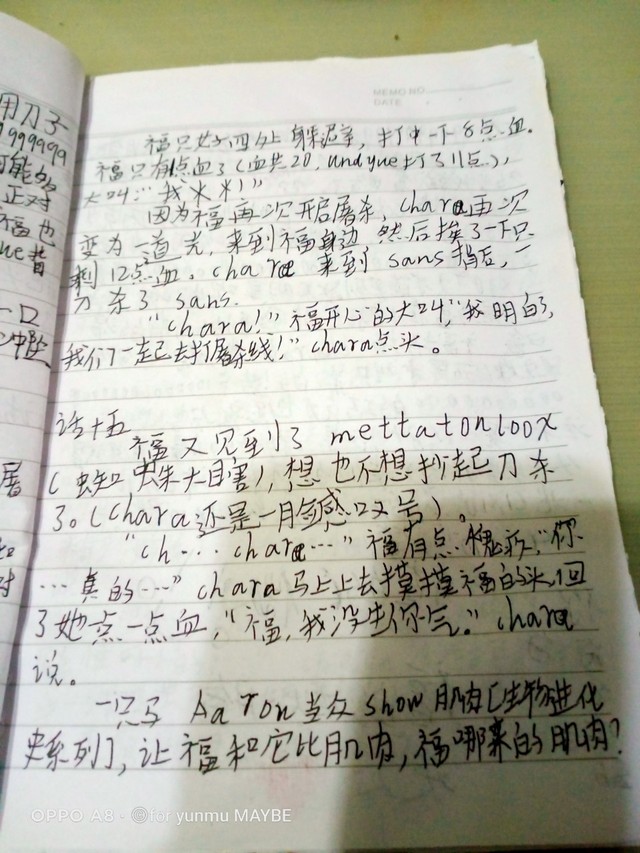 用刀子
999999
可能的
正对
福也
ue昔
一口
冲坠
屠
对
MEMO NO.
DATE
福只好四处躲避, 打中一下8点血。
福只有1点血了(血共20, andyue打了11点),
大叫:"我火米!"
因为福再次开启屠杀, chara再次
变为一道光, 来到福身边, 然后挨了一下只
剩12点血。chara 来到 sans背后, 一
刀杀了 sans.
"chara!" 福开心的大叫,"我明白了,
我们一起去打屠杀线!" chara点头。
话十五
福又见到了 mettaton loox
(蜘蛛大目害), 想也不想抄起刀杀
了。(chara还是一脸感叹号)。
"ch... chara..." 福有点愧疚,"你
...真的..." chara马上上去摸摸福的头,回
了她一点血,"福,我没生你气。" chara
说。
一只马 Aaron当众show肌肉[生物进化
史系列], 让福和它比肌肉, 福哪来的肌肉?
OPPO A8 - ©for yunmu MAYBE